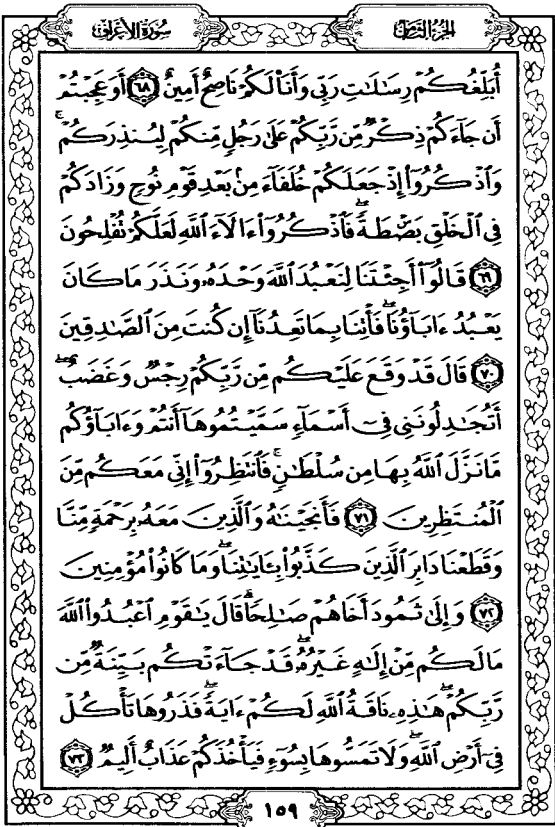 الجزء الثامن
سورة الأعراف
أُبَلِّغُكُمْ رِسَٰلَٰتِ رَبِّى وَأَنَا۠ لَكُمْ نَاصِحٌ أَمِينٌ ٦٨ أَوَعَجِبْتُمْ
أَن جَآءَكُمْ ذِكْرٌ مِّن رَّبِّكُمْ عَلَىٰ رَجُلٍ مِّنكُمْ لِيُنذِرَكُمْ ۚ
وَٱذْكُرُوٓا۟ إِذْ جَعَلَكُمْ خُلَفَآءَ مِنۢ بَعْدِ قَوْمِ نُوحٍ وَزَادَكُمْ
فِى ٱلْخَلْقِ بَصْۜطَةً ۖ فَٱذْكُرُوٓا۟ ءَالَآءَ ٱللَّهِ لَعَلَّكُمْ تُفْلِحُونَ
٦٩ قَالُوٓا۟ أَجِئْتَنَا لِنَعْبُدَ ٱللَّهَ وَحْدَهُۥ وَنَذَرَ مَا كَانَ
يَعْبُدُ ءَابَآؤُنَا ۖ فَأْتِنَا بِمَا تَعِدُنَآ إِن كُنتَ مِنَ ٱلصَّٰدِقِينَ
٧٠ قَالَ قَدْ وَقَعَ عَلَيْكُم مِّن رَّبِّكُمْ رِجْسٌ وَغَضَبٌ ۖ
أَتُجَٰدِلُونَنِى فِىٓ أَسْمَآءٍ سَمَّيْتُمُوهَآ أَنتُمْ وَءَابَآؤُكُم
مَّا نَزَّلَ ٱللَّهُ بِهَا مِن سُلْطَٰنٍ ۚ فَٱنتَظِرُوٓا۟ إِنِّى مَعَكُم مِّنَ
ٱلْمُنتَظِرِينَ ٧١ فَأَنجَيْنَٰهُ وَٱلَّذِينَ مَعَهُۥ بِرَحْمَةٍ مِّنَّا
وَقَطَعْنَا دَابِرَ ٱلَّذِينَ كَذَّبُوا۟ بِـَٔايَٰتِنَا ۖ وَمَا كَانُوا۟ مُؤْمِنِينَ
٧٢ وَإِلَىٰ ثَمُودَ أَخَاهُمْ صَٰلِحًا ۗ قَالَ يَٰقَوْمِ ٱعْبُدُوا۟ ٱللَّهَ
مَا لَكُم مِّنْ إِلَٰهٍ غَيْرُهُۥ ۖ قَدْ جَآءَتْكُم بَيِّنَةٌ مِّن
رَّبِّكُمْ ۖ هَٰذِهِۦ نَاقَةُ ٱللَّهِ لَكُمْ ءَايَةً ۖ فَذَرُوهَا تَأْكُلْ
فِىٓ أَرْضِ ٱللَّهِ ۖ وَلَا تَمَسُّوهَا بِسُوٓءٍ فَيَأْخُذَكُمْ عَذَابٌ أَلِيمٌ ٧٣
١٥٩